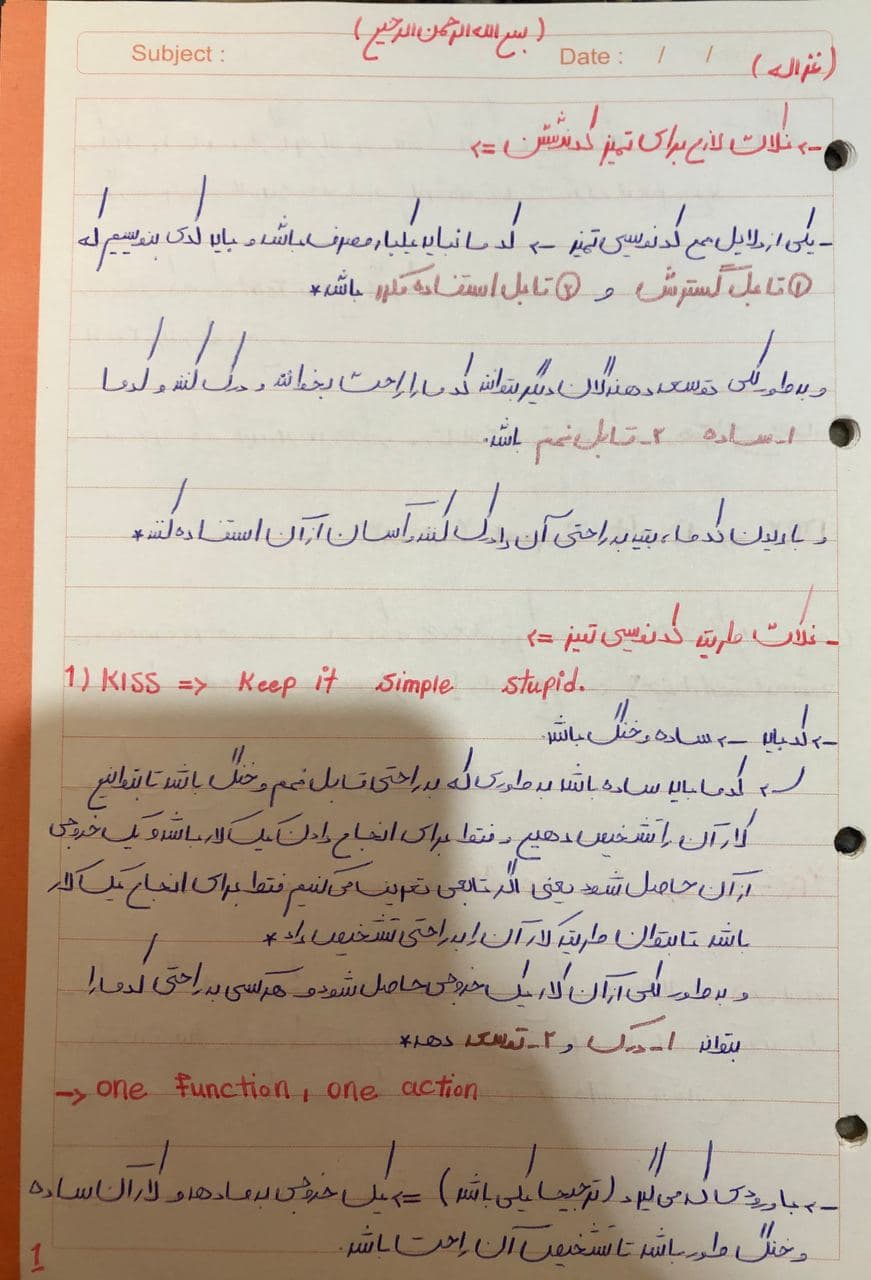 (بسم الله الرحمن الرحیم)
Subject :
Date : / /
(غزاله)
-> نکات لازم برای تمیز کد نوشتن =>
- یکی از دلایل مهم کدنویسی تمیز -> کد ما نباید یکبار مصرف باشد و باید کدی بنویسیم که
① قابل گسترش و ② قابل استفاده مکرر باشد*
و به طور کلی توسعه دهندگان دیگر بتوانند کد ما را راحت بخوانند و درک کنند و کد ما
۱- ساده ۲- قابل فهم باشد.
و با دیدن کد ما، بقیه به راحتی آن را درک کنند و آسان از آن استفاده کنند*
- نکات طریقه کدنویسی تمیز =>
1) KISS => Keep it simple stupid.
-> کد باید -> ساده و خنگ باشد.
-> کد ما باید ساده باشد به طوری که به راحتی قابل فهم و خنگ باشد تا بتوانیم
کار آن را تشخیص دهیم و فقط برای انجام دادن یک کار باشد و یک خروجی
از آن حاصل شود یعنی اگر تابعی تعریف می‌کنیم فقط برای انجام یک کار
باشد تا بتوان طریقه کار آن را به راحتی تشخیص داد*
و به طور کلی از آن کار، یک خروجی حاصل شود و هرکسی به راحتی کد ما را
بتواند ۱- درک و ۲- توسعه دهد*
-> one function, one action
-> با ورودی ای که می گیرد (ترجیحا یکی باشد) => یک خروجی به ما دهد و کار آن ساده
و خنگ طور باشد تا تشخیص آن راحت باشد.
1